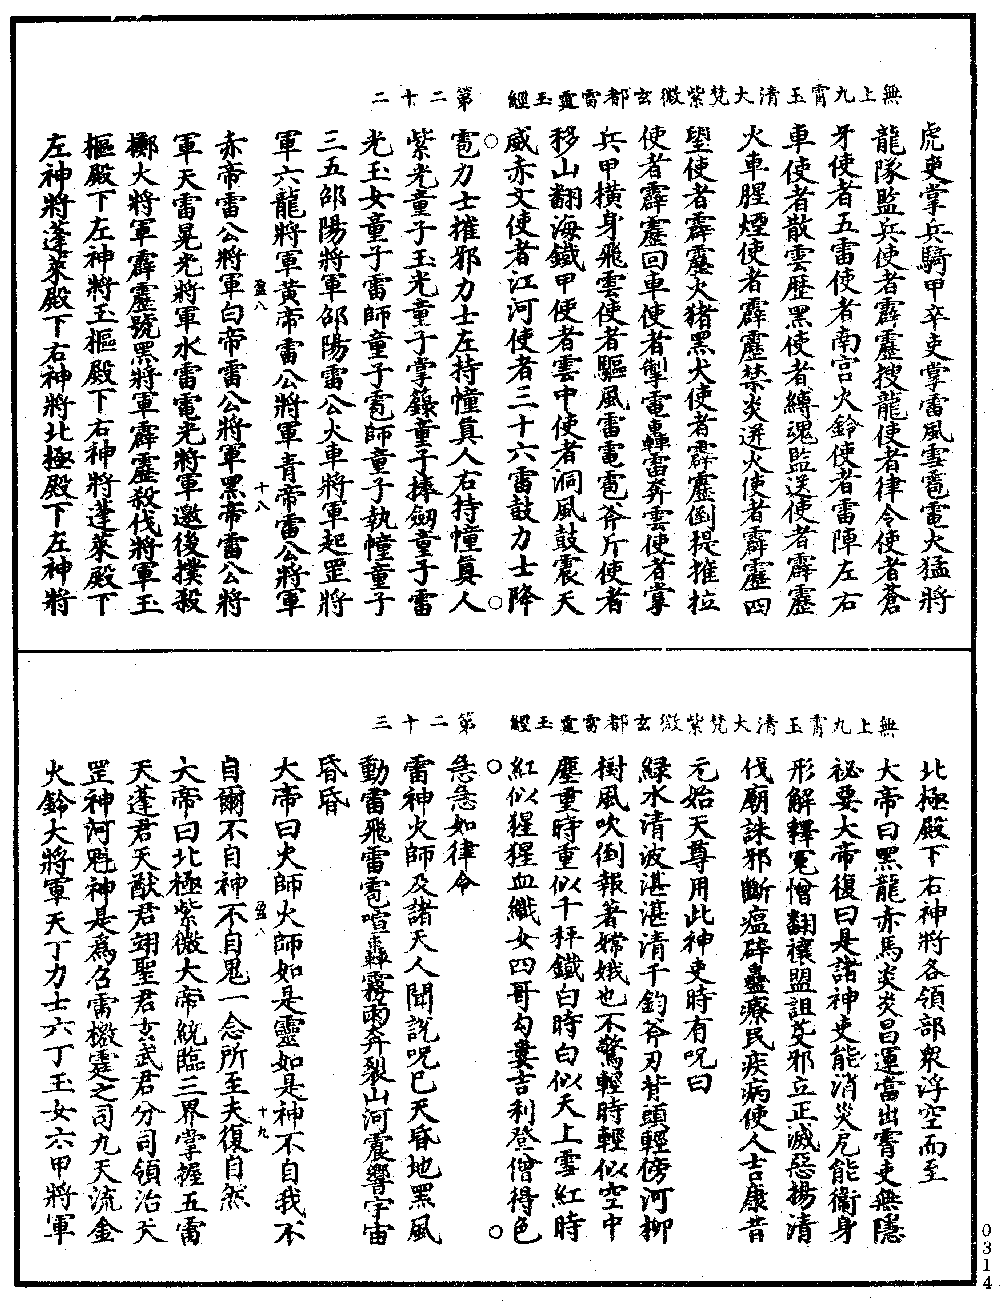 無上九霄玉清大梵紫微玄都雷霆玉經 第二十二
虎吏掌兵騎甲卒吏掌雷風雲雹電火猛將
龍隊監兵使者霹靂搜龍使者律令使者蒼
牙使者五雷使者南宮火鈴使者雷陣左右
車使者散雲歷黑使者縛魂監送使者霹靂
火車腥煙使者霹靂禁炎迸火使者霹靂四
望使者霹靂火猪黑犬使者霹靂倒提摧拉
使者霹靂回車使者掣電轟雷奔雲使者掌
兵甲橫身飛雲使者驅風雷電雹斧斤使者
移山翻海鐵甲使者雲中使者洞風鼓震天
威赤文使者江河使者三十六雷鼓力士降
雹力士摧邪力士左持幢真人右持幢真人
紫光童子玉光童子掌籙童子捧劒童子雷
光玉女童子雷師童子雹師童子執幢童子
三五邵陽將軍邵陽雷公火車將軍起罡將
軍六龍將軍黃帝雷公將軍青帝雷公將軍
盈八 十八
赤帝雷公將軍白帝雷公將軍黑帝雷公將
軍天雷晃光將軍水雷電光將軍邀後撲殺
擲火將軍霹靂號黑將軍霹靂殺伐將軍玉
樞殿下左神將玉樞殿下右神將蓬萊殿下
左神將蓬萊殿下右神將北極殿下左神將
無上九霄玉清大梵紫微玄都雷霆玉經 第二十三
北極殿下右神將各領部眾浮空而至
大帝曰黑龍赤馬炎炎昌運當出霄吏無隱
祕要大帝復曰是諸神吏能消災厄能衞身
形解釋冤憎翻禳盟詛芟邪立正滅惡揚清
伐廟誅邪斷瘟辟蠱療民疾病使人吉康昔
元始天尊用此神吏時有呪曰
綠水清波湛湛清千鈞斧刃背頭輕傍河柳
樹風吹倒報著嫦娥也不驚輕時輕似空中
塵重時重似千秤鐵白時白似天上雪紅時
紅似猩猩血織女四哥勾婁吉利登僧得色
急急如律令
雷神火師及諸天人聞說呪已天昏地黑風
動雷飛雷雹喧轟霧雨奔裂山河震響宇宙
昏昏
大帝曰火師火師如是靈如是神不自我不
盈八 十九
自爾不自神不自鬼一念所至夫復自然
大帝曰北極紫微大帝統臨三界掌握五雷
天蓬君天猷君翊聖君玄武君分司領治天
罡神河魁神是為召雷檄霆之司九天流金
火鈴大將軍天丁力士六丁玉女六甲將軍
0314